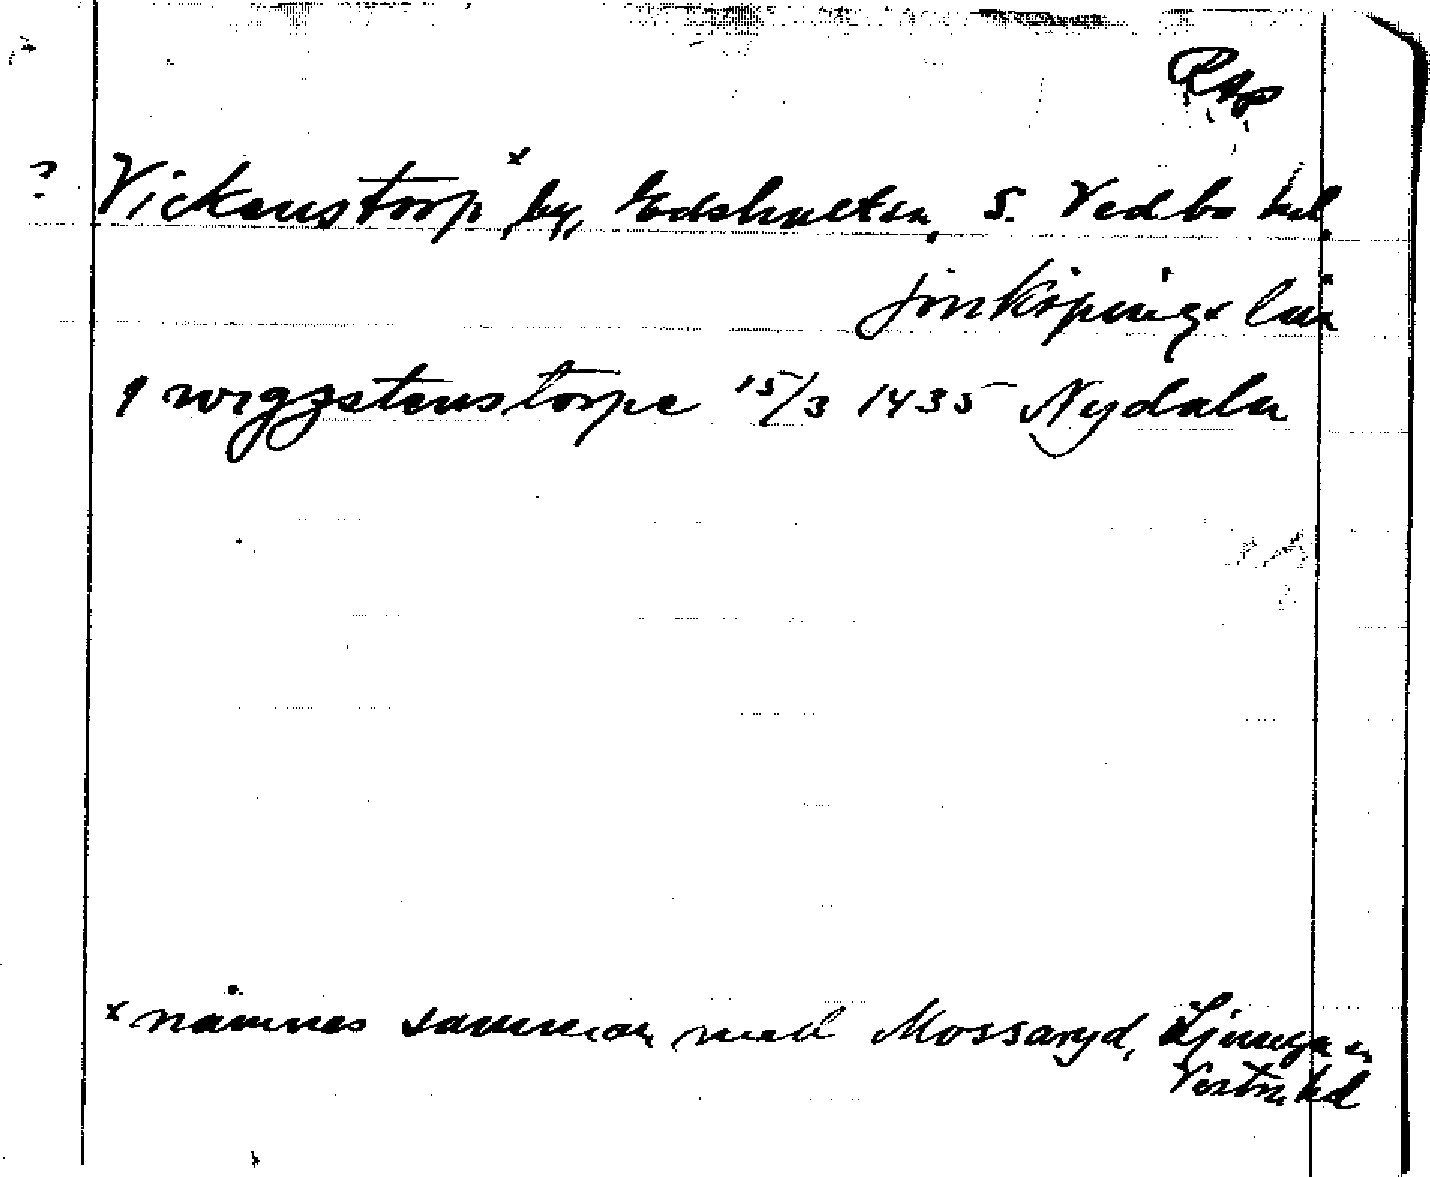 RAp
? Vickenstorp x by, Edshulten, S. Vedbo hd.
Jönköpings län
i wigzstenstorpe 15/3 1435 Nydala
x nämnes samman med Mossaryd, Ljunga sn
Vestra hd